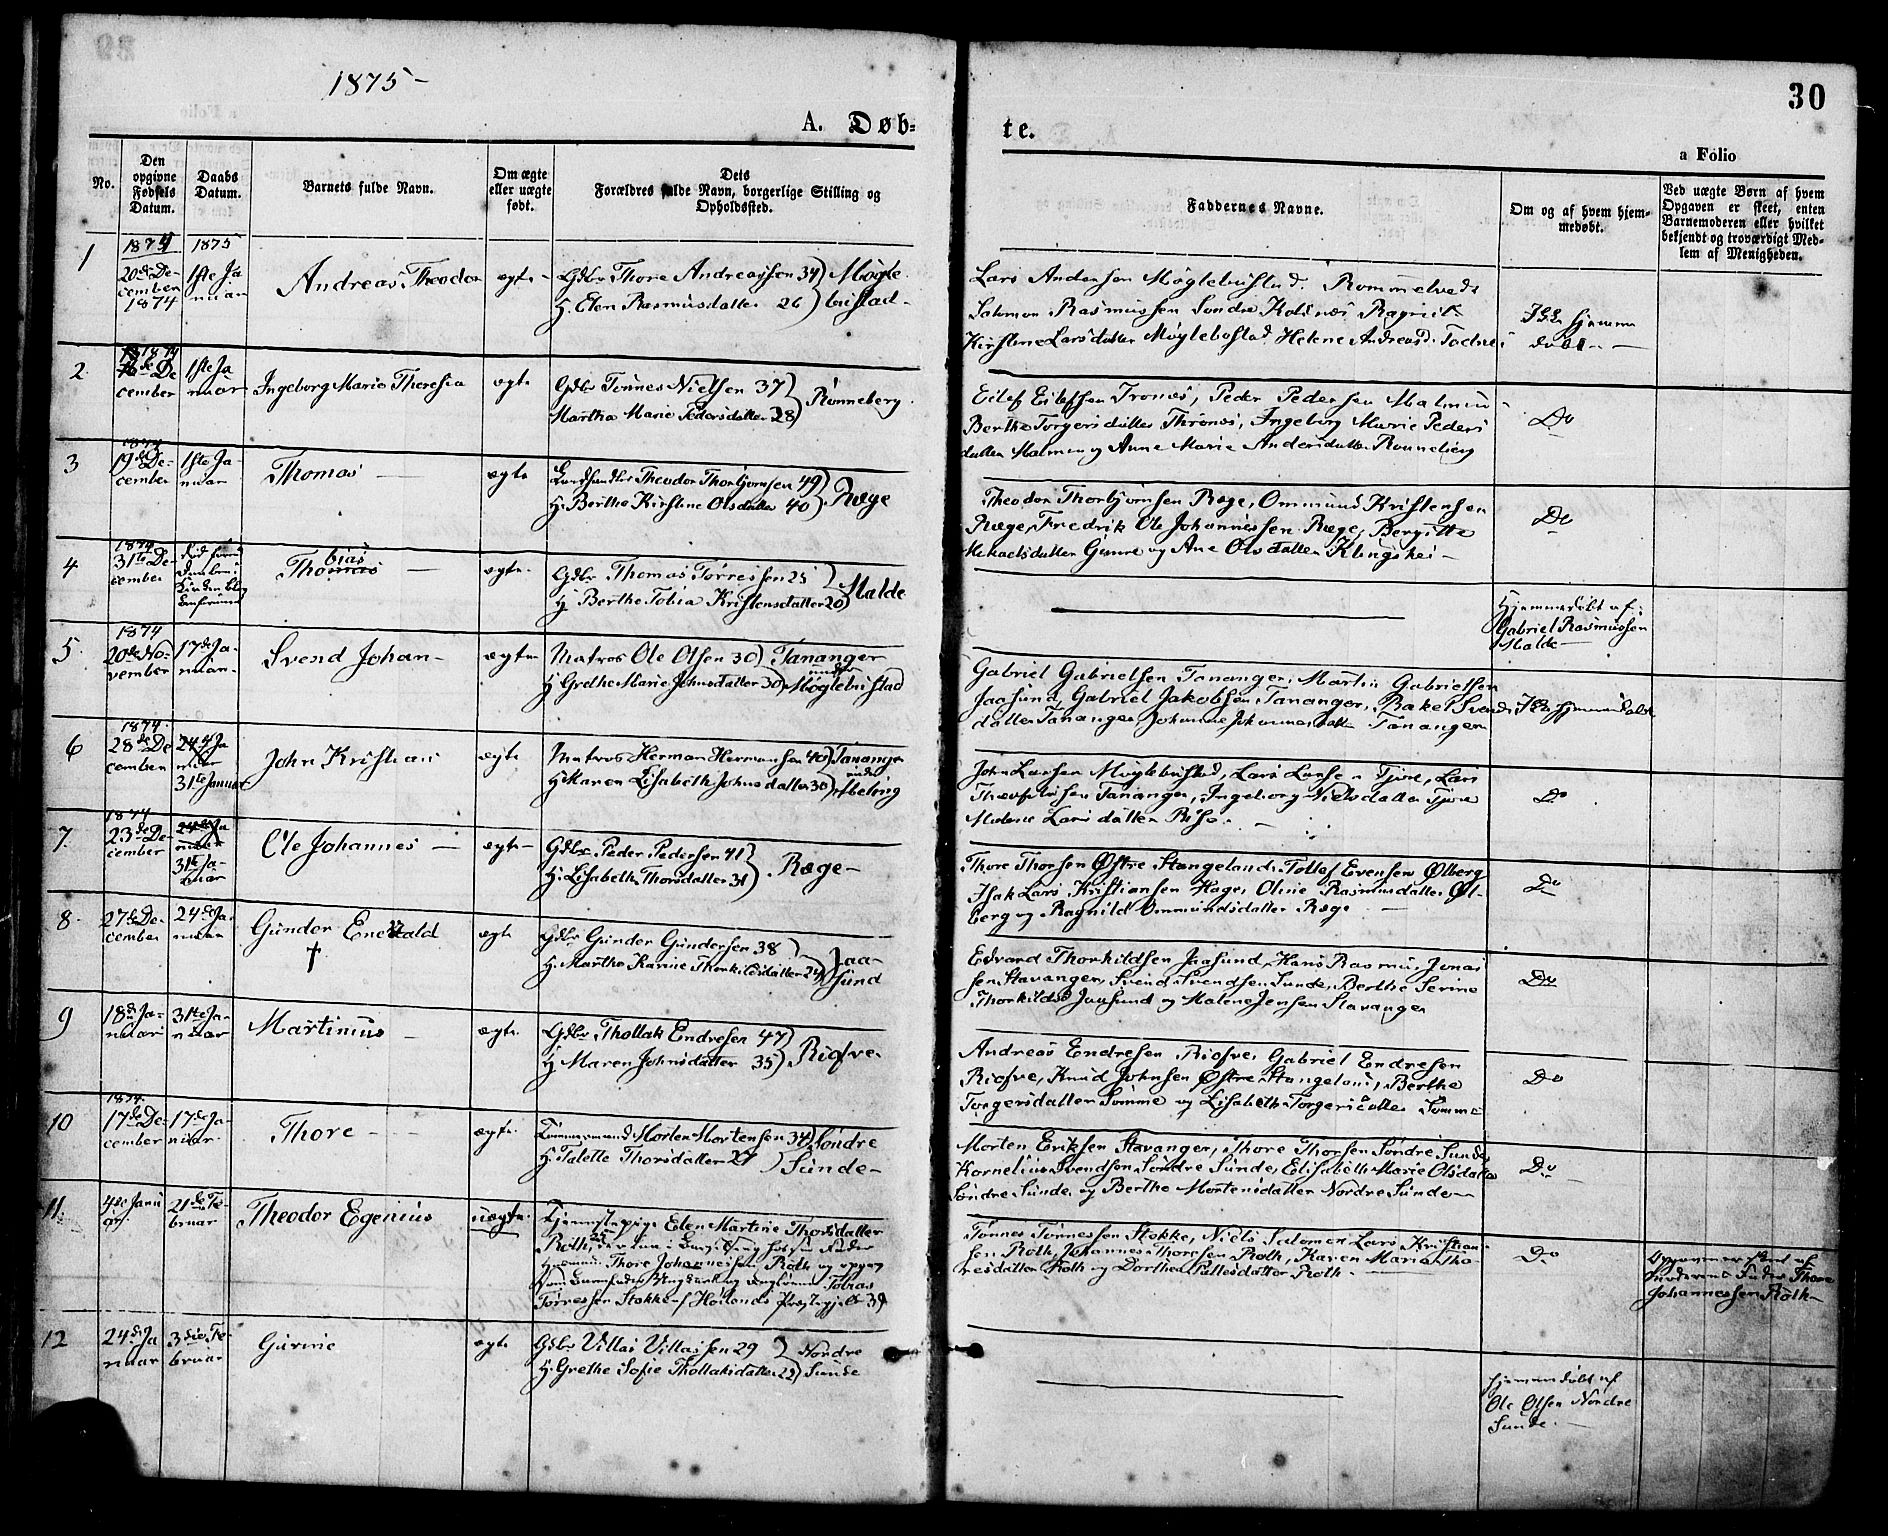 1875-
30
A. Døb-
te.
a Folio
No.
Den opgivne Fødsels Datum.
Daabs Datum.
Barnets fulde Navn.
Om ægte eller uægte født.
Dets Forældres fulde Navn, borgerlige Stilling og Opholdssted.
Faddernes Navne.
Om og af hvem hjemmedøbt.
Ved uægte Børn af hvem Opgaven er skeet, enten Barnemoderen eller hvilket bekjendt og troværdigt Medlem af Menigheden.
1
1874 1875
20de December 1874
1ste Januar
Andreas Theodor
ægte
Gdbr Thore Andreassen 34) Møgle-
H. Elen Rasmusdatter 26) bustad-
Lars Andersen Møglebustad. Rommetvedt
Salomon Rasmussen Søndre Kolnes Ragnil
Kirstine Larsdatter Møglebustad Helene Andreasd.
Ikke hjemme
døbt
2.
1874
December
1ste Januar
Ingeborg Marie Theresia
ægte
Gdbr Tønnes Nielsen 37)
Martha Marie Pedersdatter 28) Rønneberg.
Eilef Eilefsen Tronæs, Peder Pedersen Malmin
Berthe Torgersdatter Thronæs, Ingeborg Marie Peders
datter Malmin og Anne Marie Andersdatter Rønneberg
Do
3
1874
19de December
1ste Januar
Thomas
ægte
Theodor Thorbjørnsen 49)
H. Berthe Kirstine Olsdatter 40) Ræge
Theodor Thorbjørnsen Ræge, Ommund Kristensen
Ræge, Fredrik Ole Johannessen Ræge, Bergitte
Mikaelsdatter Gimre og Ane Olsdatter Klingshei-
Do
4
1874
31te December
bias
Thomas
ægte
Gdbr Thomas Tørressen 25)
H. Berthe Tobia Kristensdatter 20) Malde
Hjemmedøbt af
Gabriel Rasmussen
Malde-
5.
1874
20de November
17de Januar-
Svend Johan-
ægte
Matros Ole Olsen 30) Tananger
under
H. Grethe Marie Johnsdatter 30) Møglebustad
Gabriel Gabrielsen Tananger, Martin Gabrielsen
Jaasund, Gabriel Jakobsen Tananger, Rakel Svends
datter Tananger, Johanne Johannesdatter Tananger
Ikke hjemmedøbt
6
1874
28de December
24de Januar
31te Januar
John Kristian
ægte
Matros Herman Hermansen 40) Tananger
under
H. Maren Lisabeth Johnsdatter 30)
John Larsen Møglebustad, Lars Larsen Tjøre, Lars
Tananger, Ingeborg Nielsdatter Tjøre
Malene Larsdatter Risa.
Do
7.
1874
23de December
24de Januar
31te Januar
Ole Johannes
ægte-
Gdbr Peder Pedersen 41)
H. Lisabeth Thorsdatter 31) Ræge-
Thore Thorsen Østre Stangeland, Tollef Evensen Ølberg
Isak Lars Kristiansen Hage, Oline Rasmusdatter Øl-
berg og Ragnild Ommundsdatter Ræge
Do
8.
27de December
24de Januar
Gunder Enevald
†
ægte
Gdbr Gunder Gundersen 38)
H. Marthe Karine Thorkildsdatter 24) Jaa-
sund
Edvard Thorkildsen Jaasund, Hans Rasmus Jonas
sen Stavanger, Svend Svendsen Sunde, Berthe Serine
Thorkildsd Jaasund og Malene Jensen Stavanger
Do
9
18de Januar
31te Januar
Martinius
ægte.
Gdbr Thollak Endresen 47)
H. Maren Johnsdatter 35) Risfve.
Andreas Endresen Risfve, Gabriel Endresen
Risfve, Knud Johnsen Østre Stangeland, Berthe
Torgersdatter Sømme og Lisabeth Torgersdatter Sømme
Do
10
1874.
17de December
17de Januar.
Thore
ægte.
Tømmermand Morten Mortensen 34) Søndre
H. Talette Thorsdatter 27) Sunde-
Morten Eriksen Stavanger, Thore Thorsen Søndre Sunde
Kornelius Svendsen Søndre Sunde, Elisabeth Marie Olsdatter
Søndre Sunde, og Berthe Mortensdatter Nordre Sunde
Do
11.
4de Januar.
21de Februar
Theodor Egenius
uægte.
Tjenestepige Elen Martine Thorsdatter
Roth, 25
Thore Johannessen Roth og opgav
som Barnefader Ungkarl og Tobias
Tørressen Stokke i Høilands Præstegjeld 39
Tønnes Tønnessen Stokke, Niels Salomon Lars Kristian-
sen Roth, Johannes Thoresen Roth, Karen Marie Tho-
resdatter Roth og Dorthea Pallesdatter Roth.
Do
Opgaven er skeet af
Moderens Fader Thore
Johannessen Roth-
12
24de Januar
3die Februar
Gurine
ægte
Gdbr Villas Villassen 29) Nordre
H. Grethe Sofie Thollaksdatter 22) Sunde
Hjemmedøbt af
Ole Olsen Nordre
Sunde.